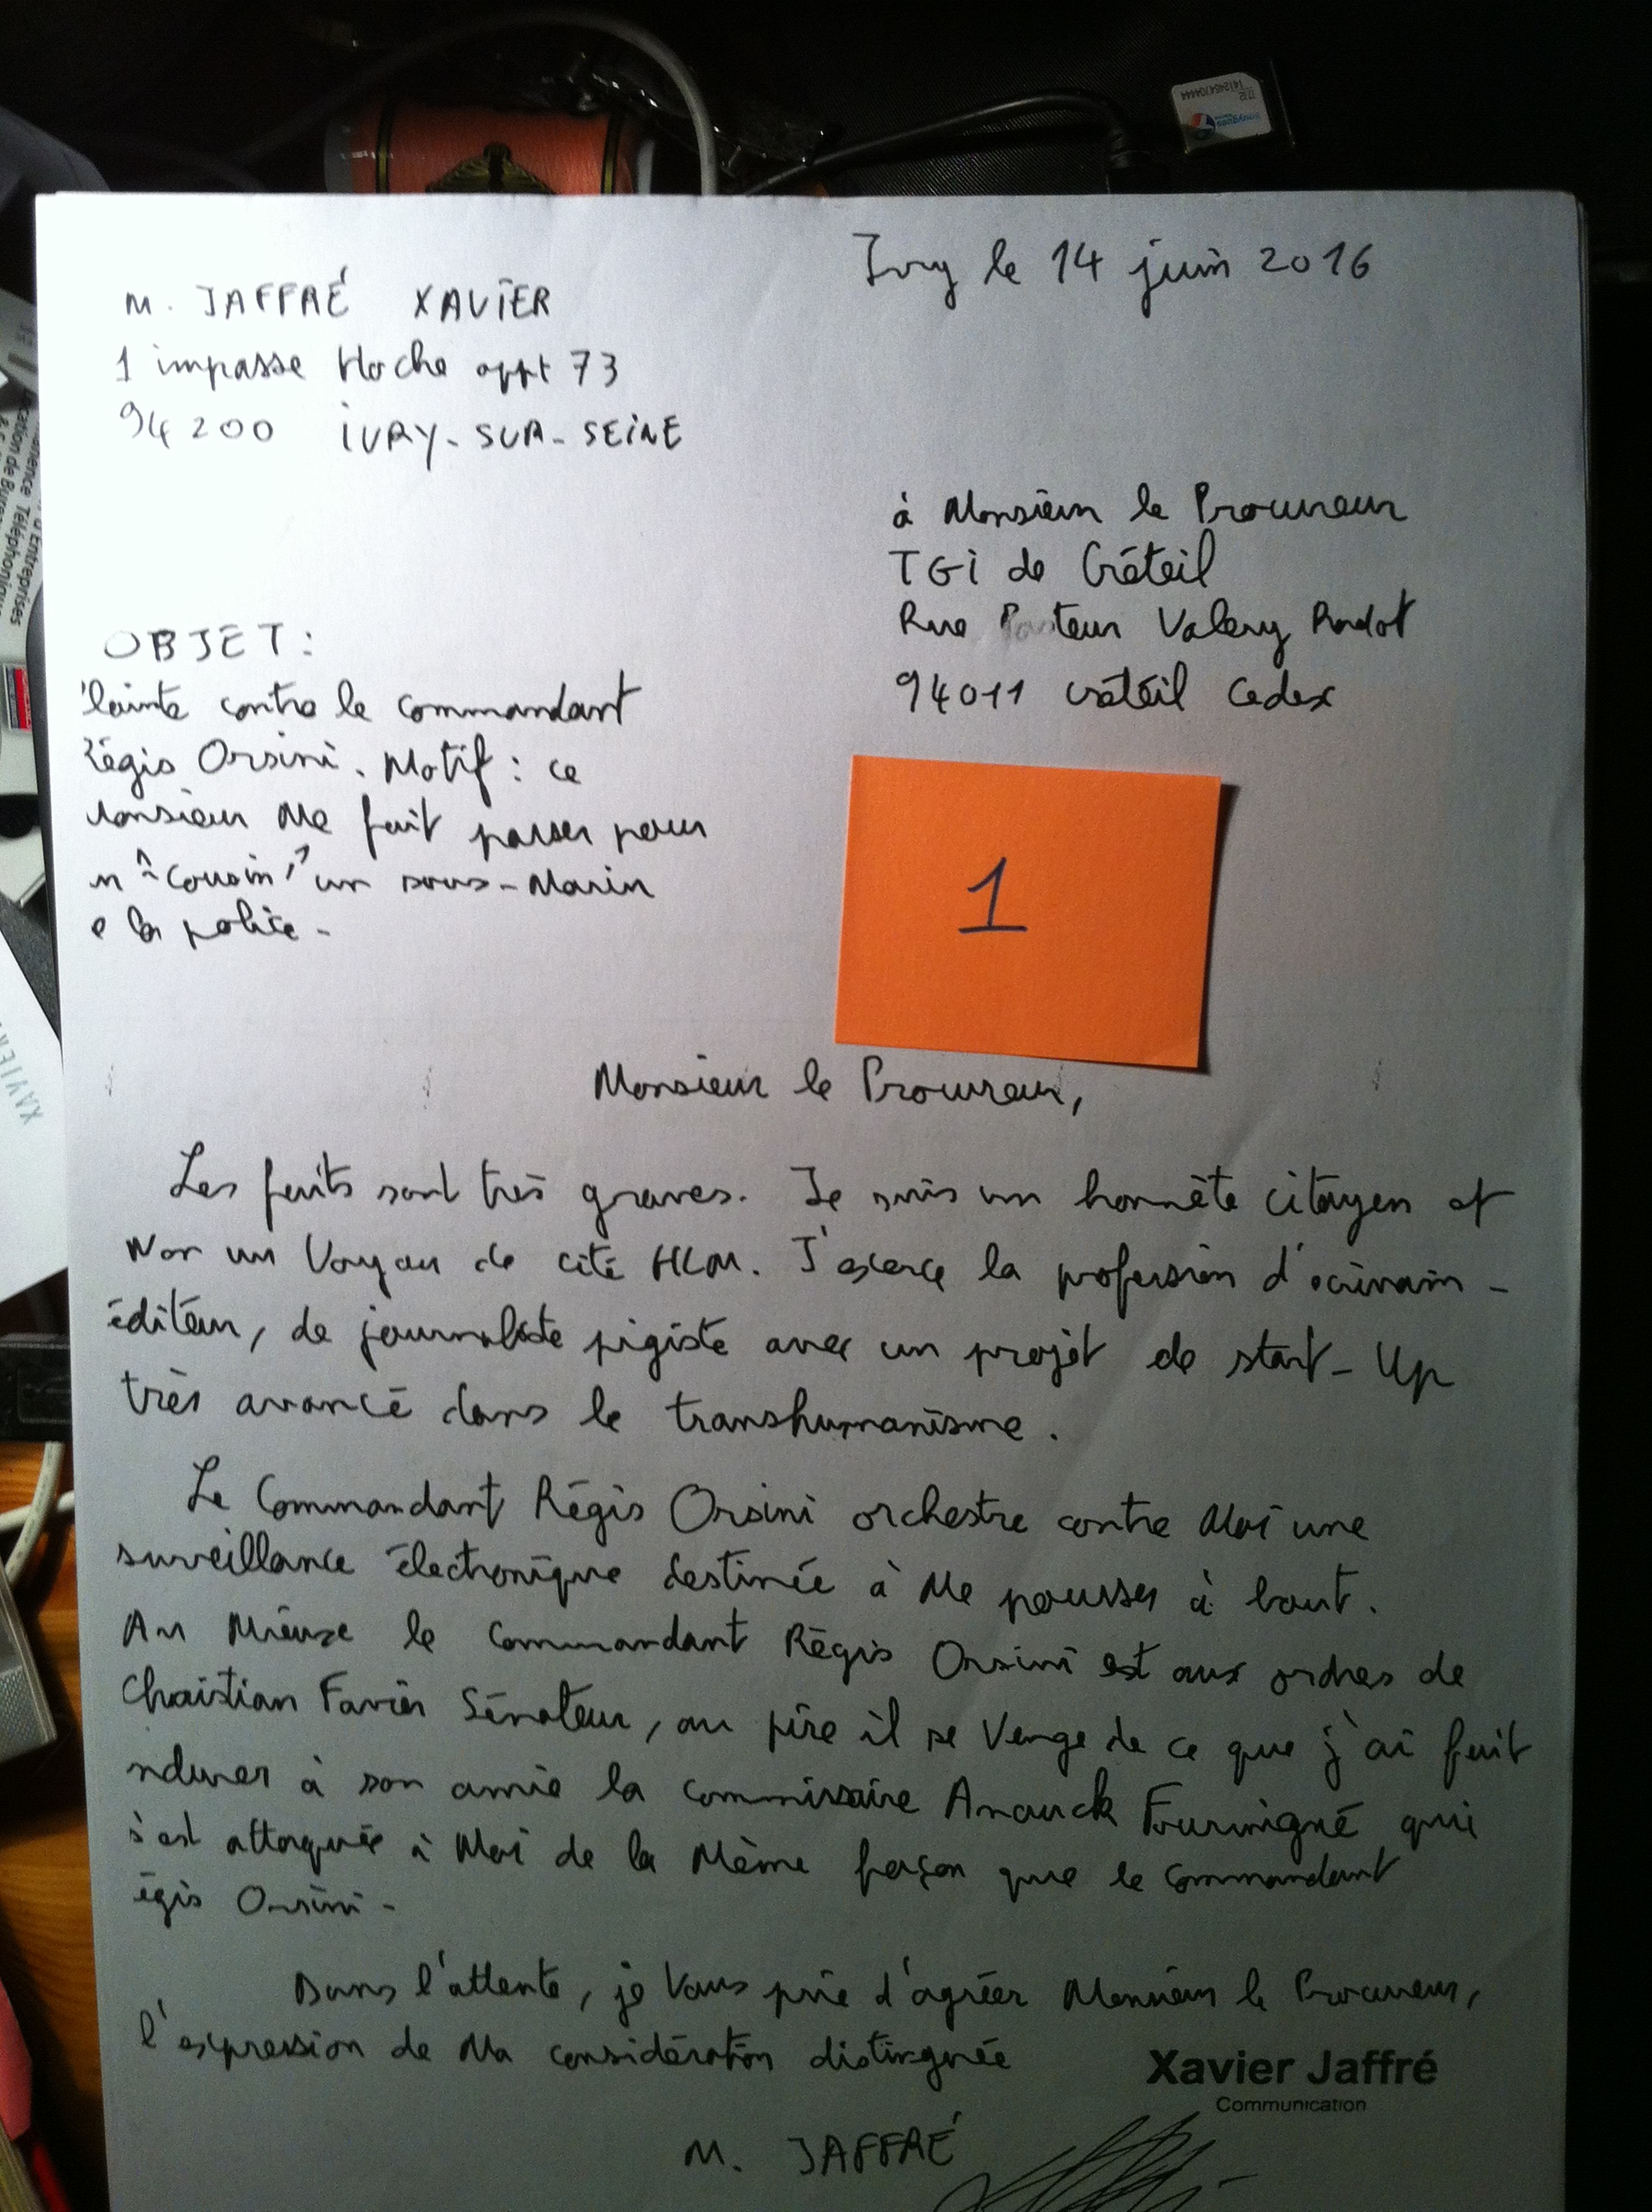 Ivry le 14 juin 2016
M. JAFFRÉ XAVIER
1 impasse Hoche appt 73
94200 IVRY-SUR-SEINE
à Monsieur le Procureur
TGI de Créteil
Rue Pasteur Valery Radot
94011 créteil Cedex
OBJET :
lainte contre le Commandant
Régis Orsini. Motif : ce
Monsieur Me fait passer pour
n "Cousin", un sous-Marin
e la police -
1
Monsieur le Procureur,
Les faits sont très graves. Je suis un honnête citoyen et
Non un Voyou de cité HLM. J'exerce la profession d'écrivain -
éditeur, de journaliste pigiste avec un projet de start-Up
très avancé dans le transhumanisme.
Le Commandant Régis Orsini orchestre contre Moi une
surveillance électronique destinée à Me pousser à bout.
Au Mieux le Commandant Régis Orsini est aux ordres de
Christian Favier Sénateur, au pire il se Venge de ce que j'ai fait
ndurer à son amie la commissaire Anouck Fourmigué qui
s'est attaquée à Moi de la Même façon que le Commandant
égis Orsini -
Dans l'attente, je Vous prie d'agréer Monsieur le Procureur,
l'expression de Ma considération distinguée
Xavier Jaffré
Communication
M. JAFFRÉ
XAVIER